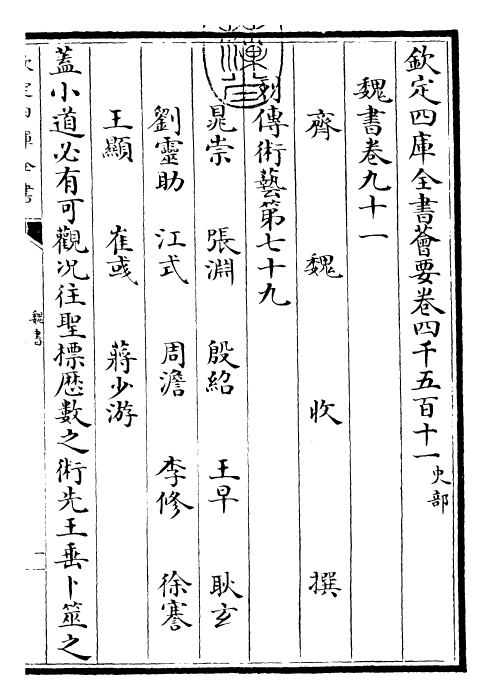 欽定四庫全書薈要卷四千五百十一 史部
魏書卷九十一
齊 魏 收 撰
列傳術藝第七十九
晁崇 張淵 殷紹 王早 耿玄
劉靈助 江式 周澹 李修 徐謇
王顯 崔彧 蔣少游
蓋小道必有可觀况往聖標歴數之術先王垂卜筮之
欽定四庫全書
魏書
一